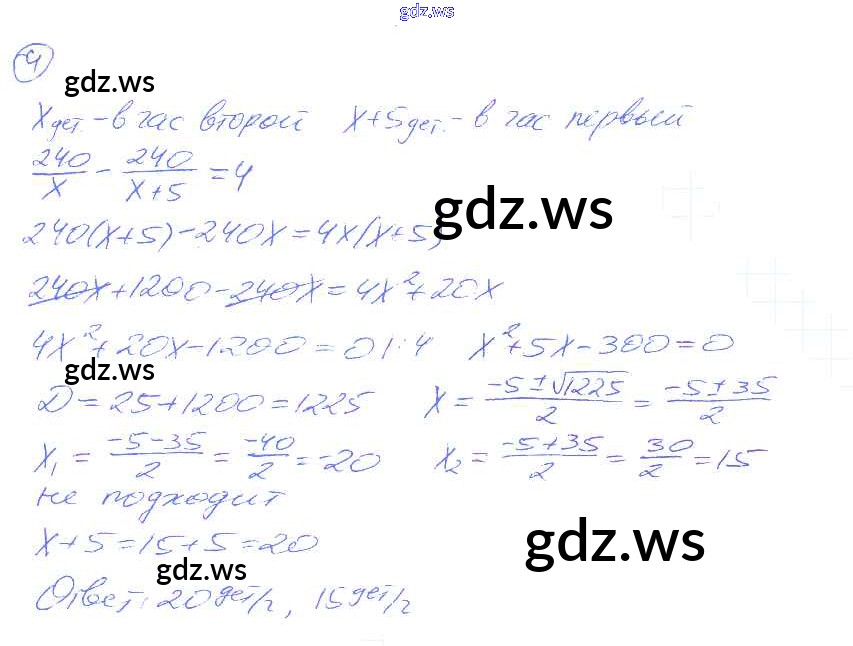 gdz.ws
4
gdz.ws
x дет. - в час второй x+5 дет. - в час первый
240/x - 240/(x+5) = 4
gdz.ws
240(x+5)-240x=4x(x+5)
240x+1200-240x=4x²+20x
4x²+20x-1200=0 |:4 x²+5x-300=0
gdz.ws
D=25+1200=1225 x = (-5±√1225)/2 = (-5±35)/2
x₁ = (-5-35)/2 = -40/2 = -20 x₂ = (-5+35)/2 = 30/2 = 15
не подходит
x+5=15+5=20
gdz.ws
gdz.ws
Ответ: 20 дет/ч, 15 дет/ч